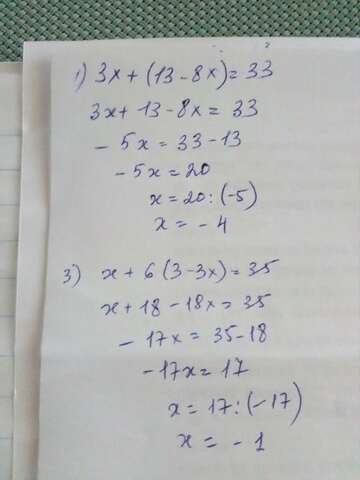 1) 3x + (13 - 8x) = 33
3x + 13 - 8x = 33
- 5x = 33 - 13
- 5x = 20
x = 20 : (-5)
x = - 4
3) x + 6 (3 - 3x) = 35
x + 18 - 18x = 35
- 17x = 35 - 18
- 17x = 17
x = 17 : (-17)
x = - 1